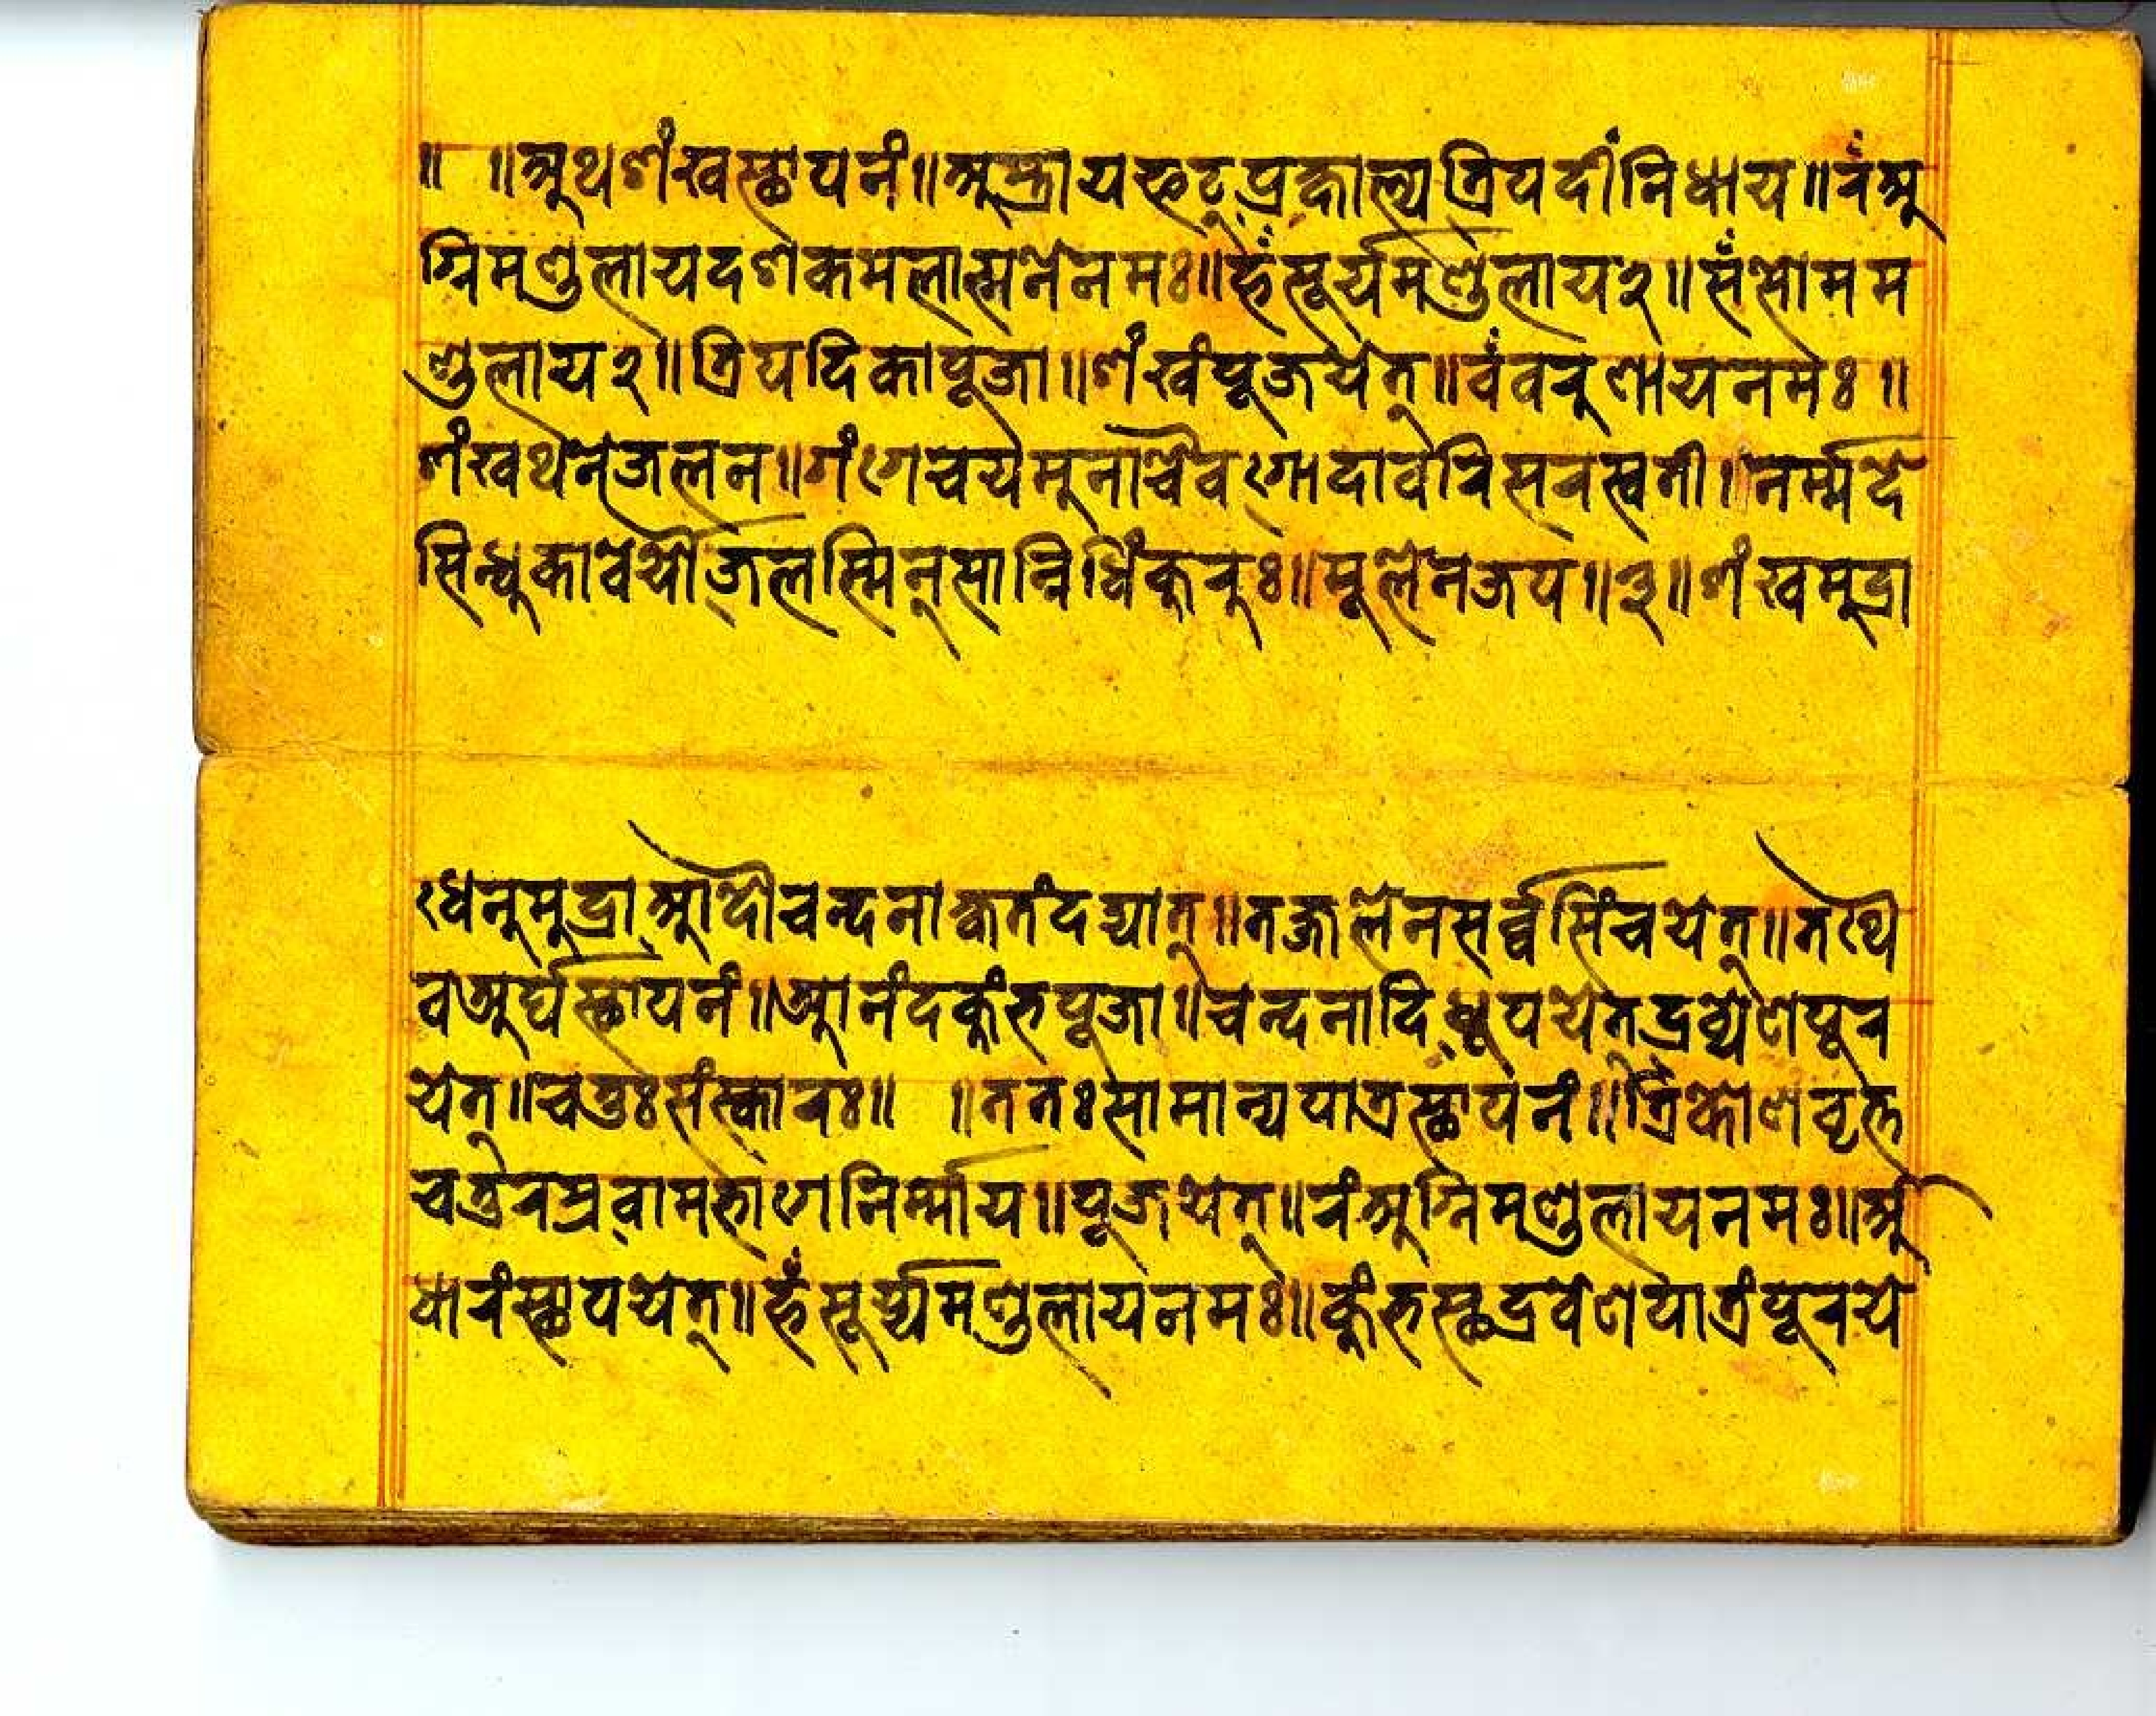 ॥ ॥अथशंखस्थापनं॥अस्त्रायफट्प्रक्षाल्यत्रिपदींनिधाय॥रँअ
ग्निमण्डलायदशकमलात्मनेनमः॥हँसूर्यमण्डलाय२॥सँसोमम
ण्डलाय२॥त्रिपदिकापूजा॥शंखंपूजयेत्॥वँवरुणायनमः॥
शंखथनेजलन॥गंगेचयमुनाचैवगोदावेरिसरस्वती।नर्म्मदे
सिन्धुकावेर्यौजलस्मिन्सान्निधिंकुरुः॥मूलेनजप॥३॥शंखमुद्रा
धेनुमुद्राआदौचन्दनाक्षतंदद्यात्॥तज्जलेनसर्व्वसिंचयेत्॥तथै
वअर्घस्थापनं॥आनंदकुंभपूजा॥चन्दनादिधूपयेतद्रव्येणपूर
येत्॥चतुःसंस्कारः॥ ॥ततःसामान्यपात्रस्थापनं॥त्रिकोणवृत्त
चतुरस्रवामभागेनिर्म्माय॥पूजयेत्॥रंअग्निमण्डलायनमः॥अर्
धारंस्थापयेत्॥हँसूर्य्यमण्डलायनमः॥कुंभस्थद्रवेणपात्रंपूरये